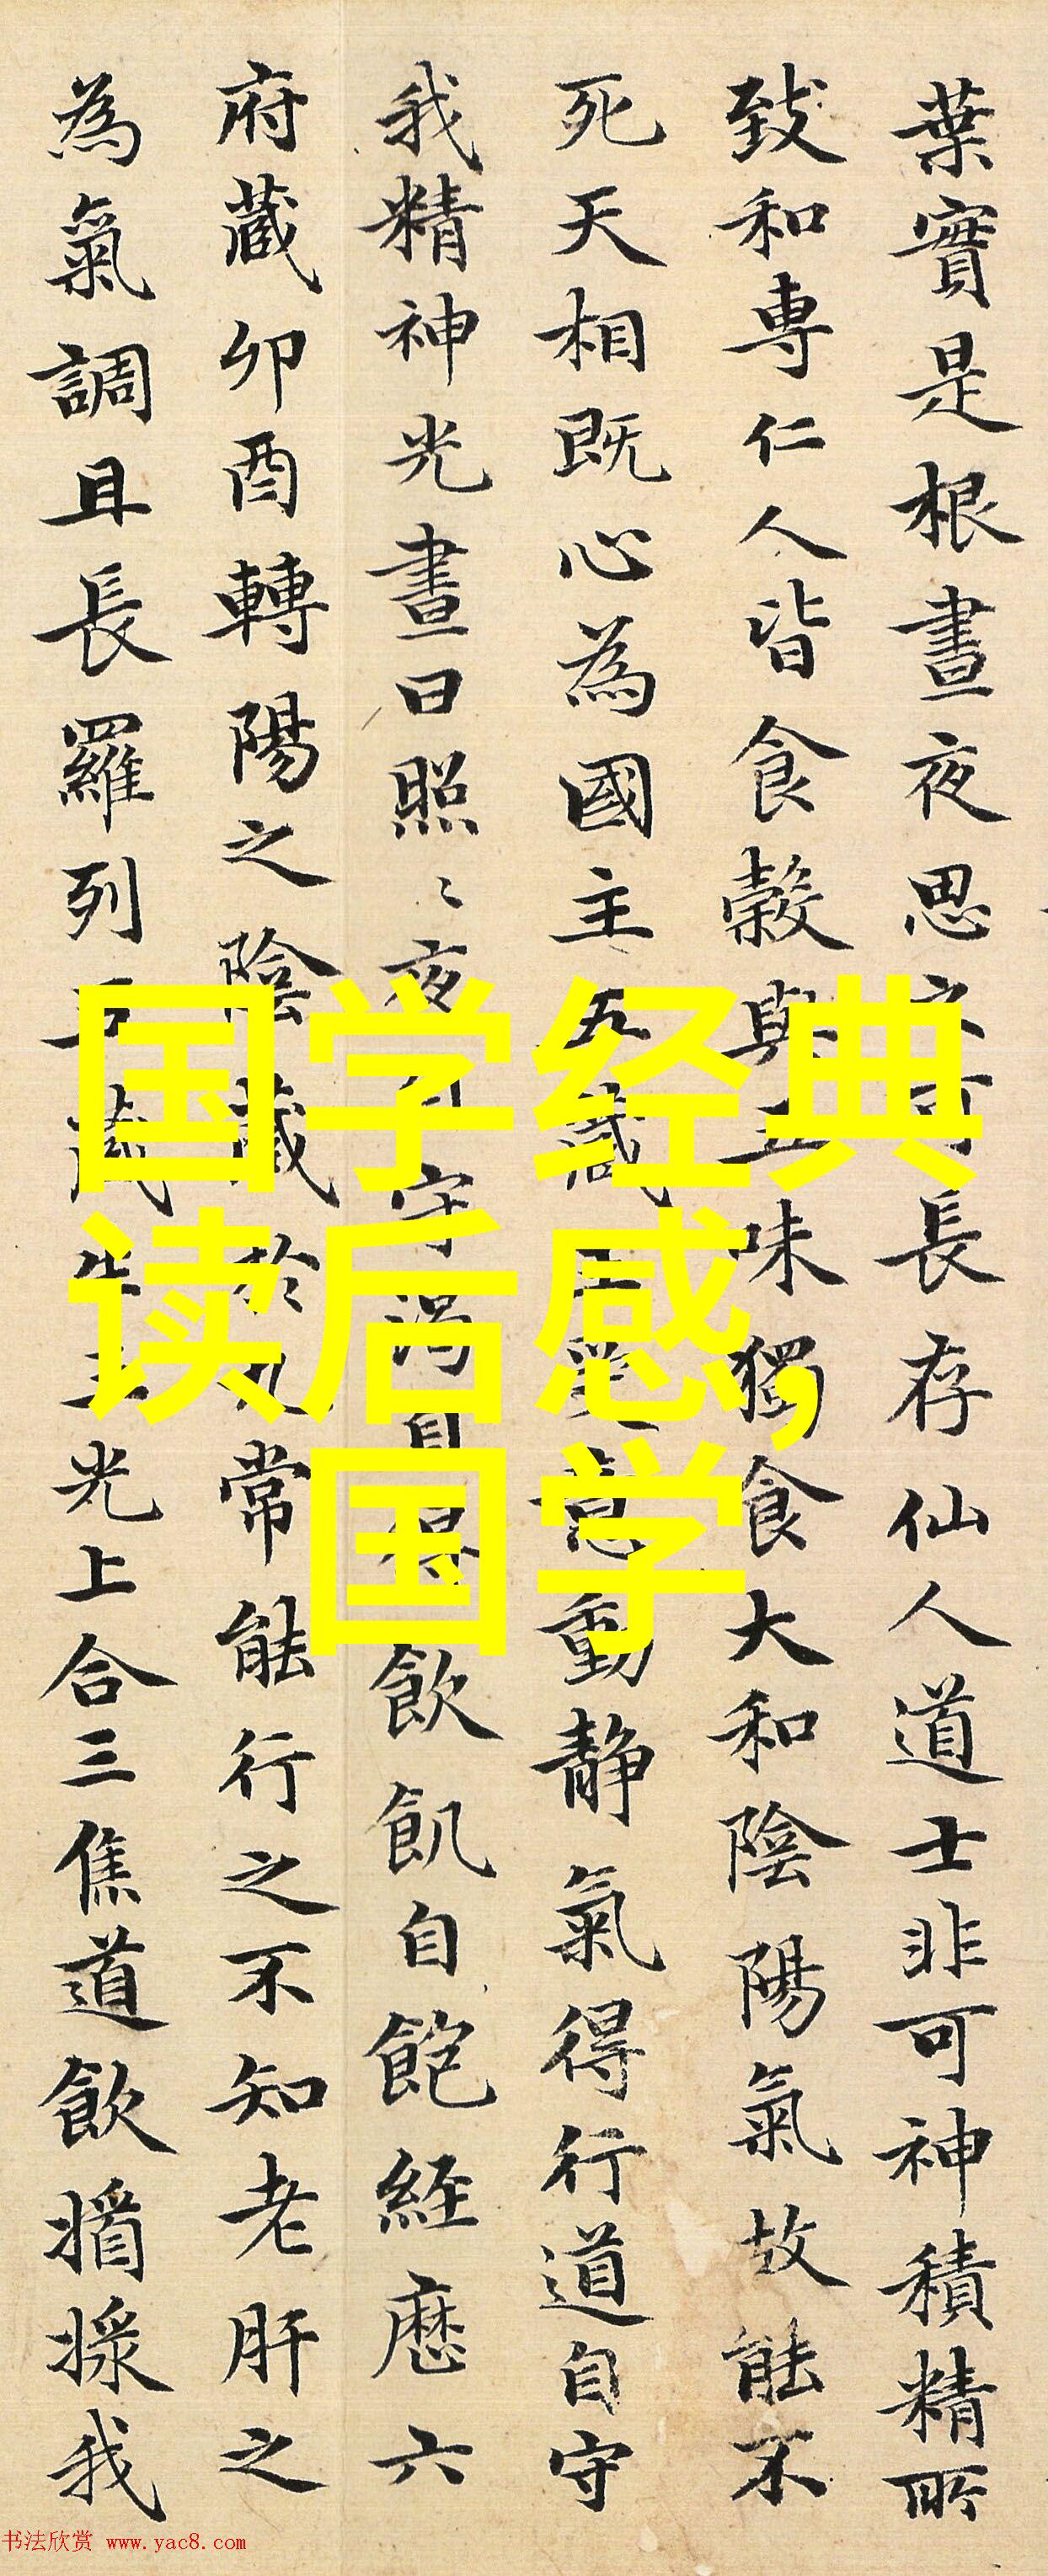 葉實是根晝夜思長存仙人道士非可神積精所
致和專仁人皆食穀與五味獨食大和陰陽氣故能不
死天相既心為國主五藏王意動静氣得行道自守
我精神光晝日照〻夜守渴自得飲飢自飽經歷六
府藏卯酉轉陽之陰藏於九常能行之不知老肝之
為氣調且長羅列五藏生三光上合三焦道飲我
国学经典
读后感,
国学
书法欣赏 www.yac8.com